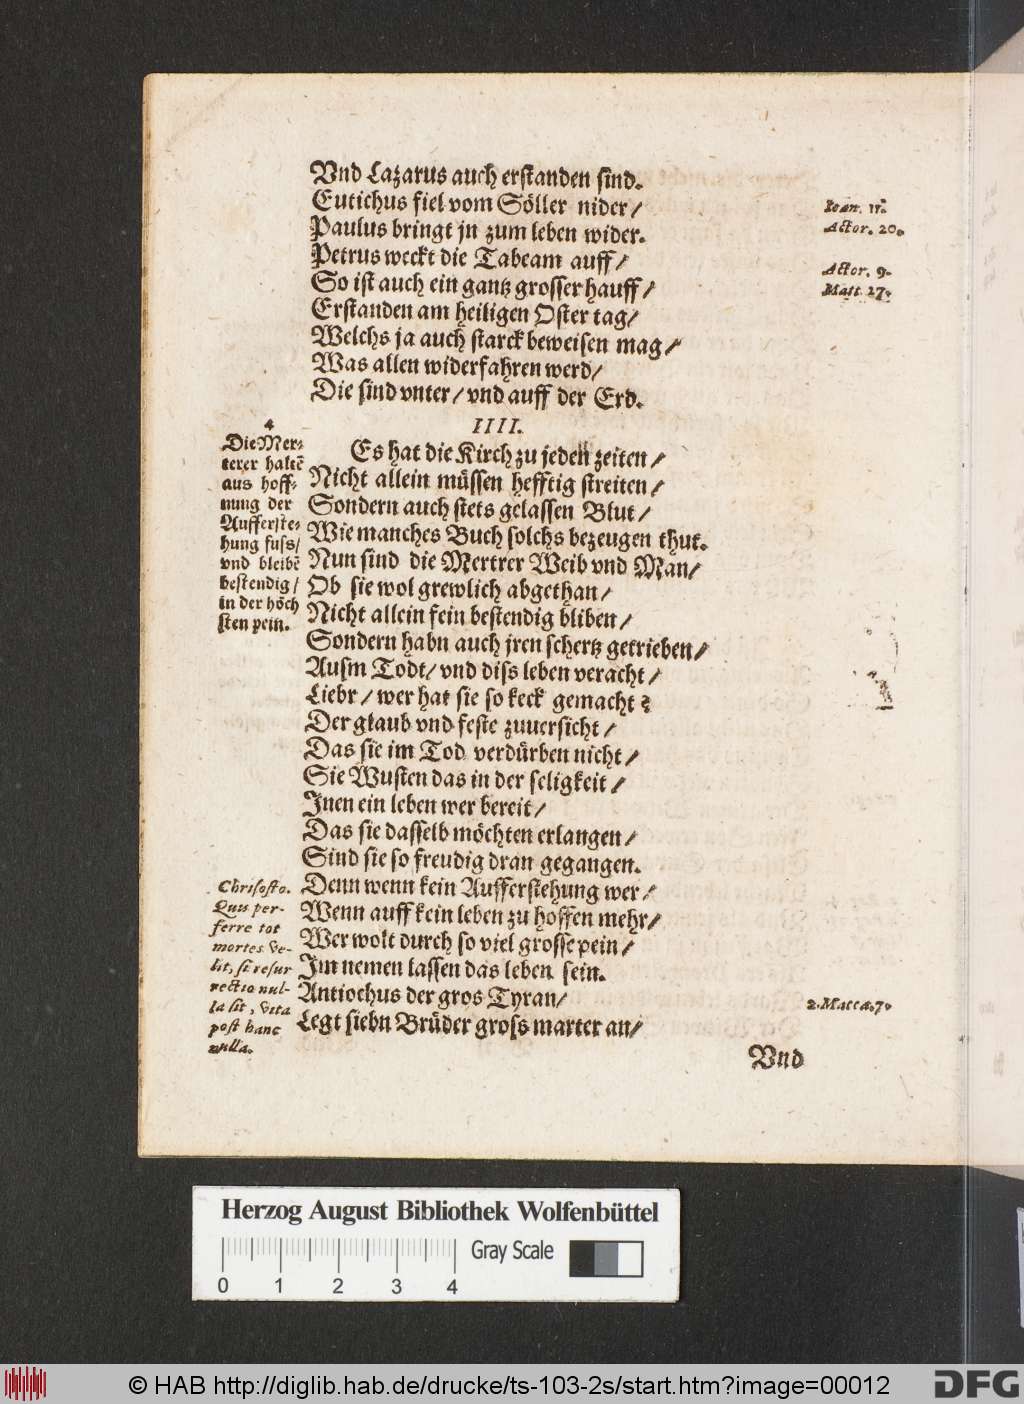 Vnd Lazarus auch erstanden sind.
Eutichus fiel vom Söller nider/
Paulus bringt jn zum leben wider.
Petrus weckt die Tabeam auff/
So ist auch ein gantz grosser hauff/
Erstanden am heiligen Oster tag/
Welchs ja auch starck beweisen mag/
Was allen widerfahren werd/
Die sind vnter/ vnd auff der Erd.
Ioan. 11.
Actor. 20.
Actor. 9.
Matt. 27.
IIII.
Es hat die Kirch zu jeden zeiten/
Nicht allein müssen hefftig streiten/
Sondern auch stets gelassen Blut/
Wie manches Buch solchs bezeugen thut.
Nun sind die Mertrer Weib vnd Man/
Ob sie wol grewlich abgethan/
Nicht allein fein bestendig bliben/
Sondern habn auch jren schertz getrieben/
Ausm Todt/ vnd diss leben veracht/
Liebr/ wer hat sie so keck gemacht?
Der glaub vnd feste zuuersicht/
Das sie im Tod verdürben nicht/
Sie Wusten das in der seligkeit/
Jnen ein leben wer bereit/
Das sie dasselb möchten erlangen/
Sind sie so freudig dran gegangen.
Denn wenn kein Aufferstehung wer/
Wenn auff kein leben zu hoffen mehr/
Wer wolt durch so viel grosse pein/
Jm nemen lassen das leben sein.
Antiochus der gros Tyran/
Legt siebn Brüder gross marter an/
4
Die Mer-
terer haltē
aus hoff-
nung der
Aufferste-
hung fuss/
vnd bleibē
bestendig/
in der höch
sten pein.
Chrisosto.
Quis per-
ferre tot
mortes ve-
lit, si resur
rectio nul-
la sit, vita
post hanc
nulla.
2. Macca. 7.
Vnd
Herzog August Bibliothek Wolfenbüttel
Gray Scale
0 1 2 3 4
© HAB http://diglib.hab.de/drucke/ts-103-2s/start.htm?image=00012
DFG